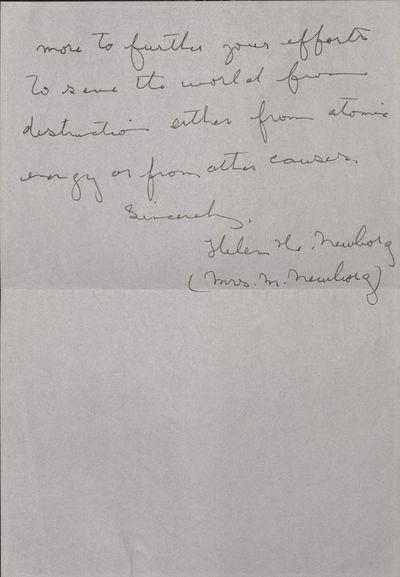 more to further your efforts
to save the world from
destruction either from atomic
energy or from other causes.
Sincerely,
Helen H. Newborg
(Mrs. M. Newborg)